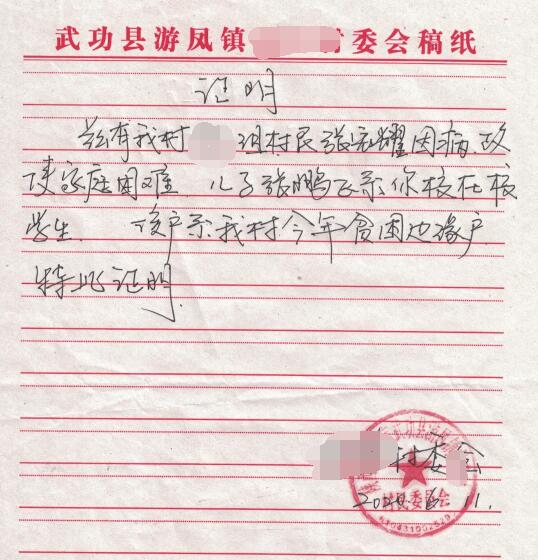 武功县游凤镇 村委会稿纸
证明
兹有我村 组村民张宏耀因病,致
使家庭困难. 儿子张鹏飞系你校在校
学生. 该户系我村今年贫困边缘户.
特此证明.
村委会
村民委员会